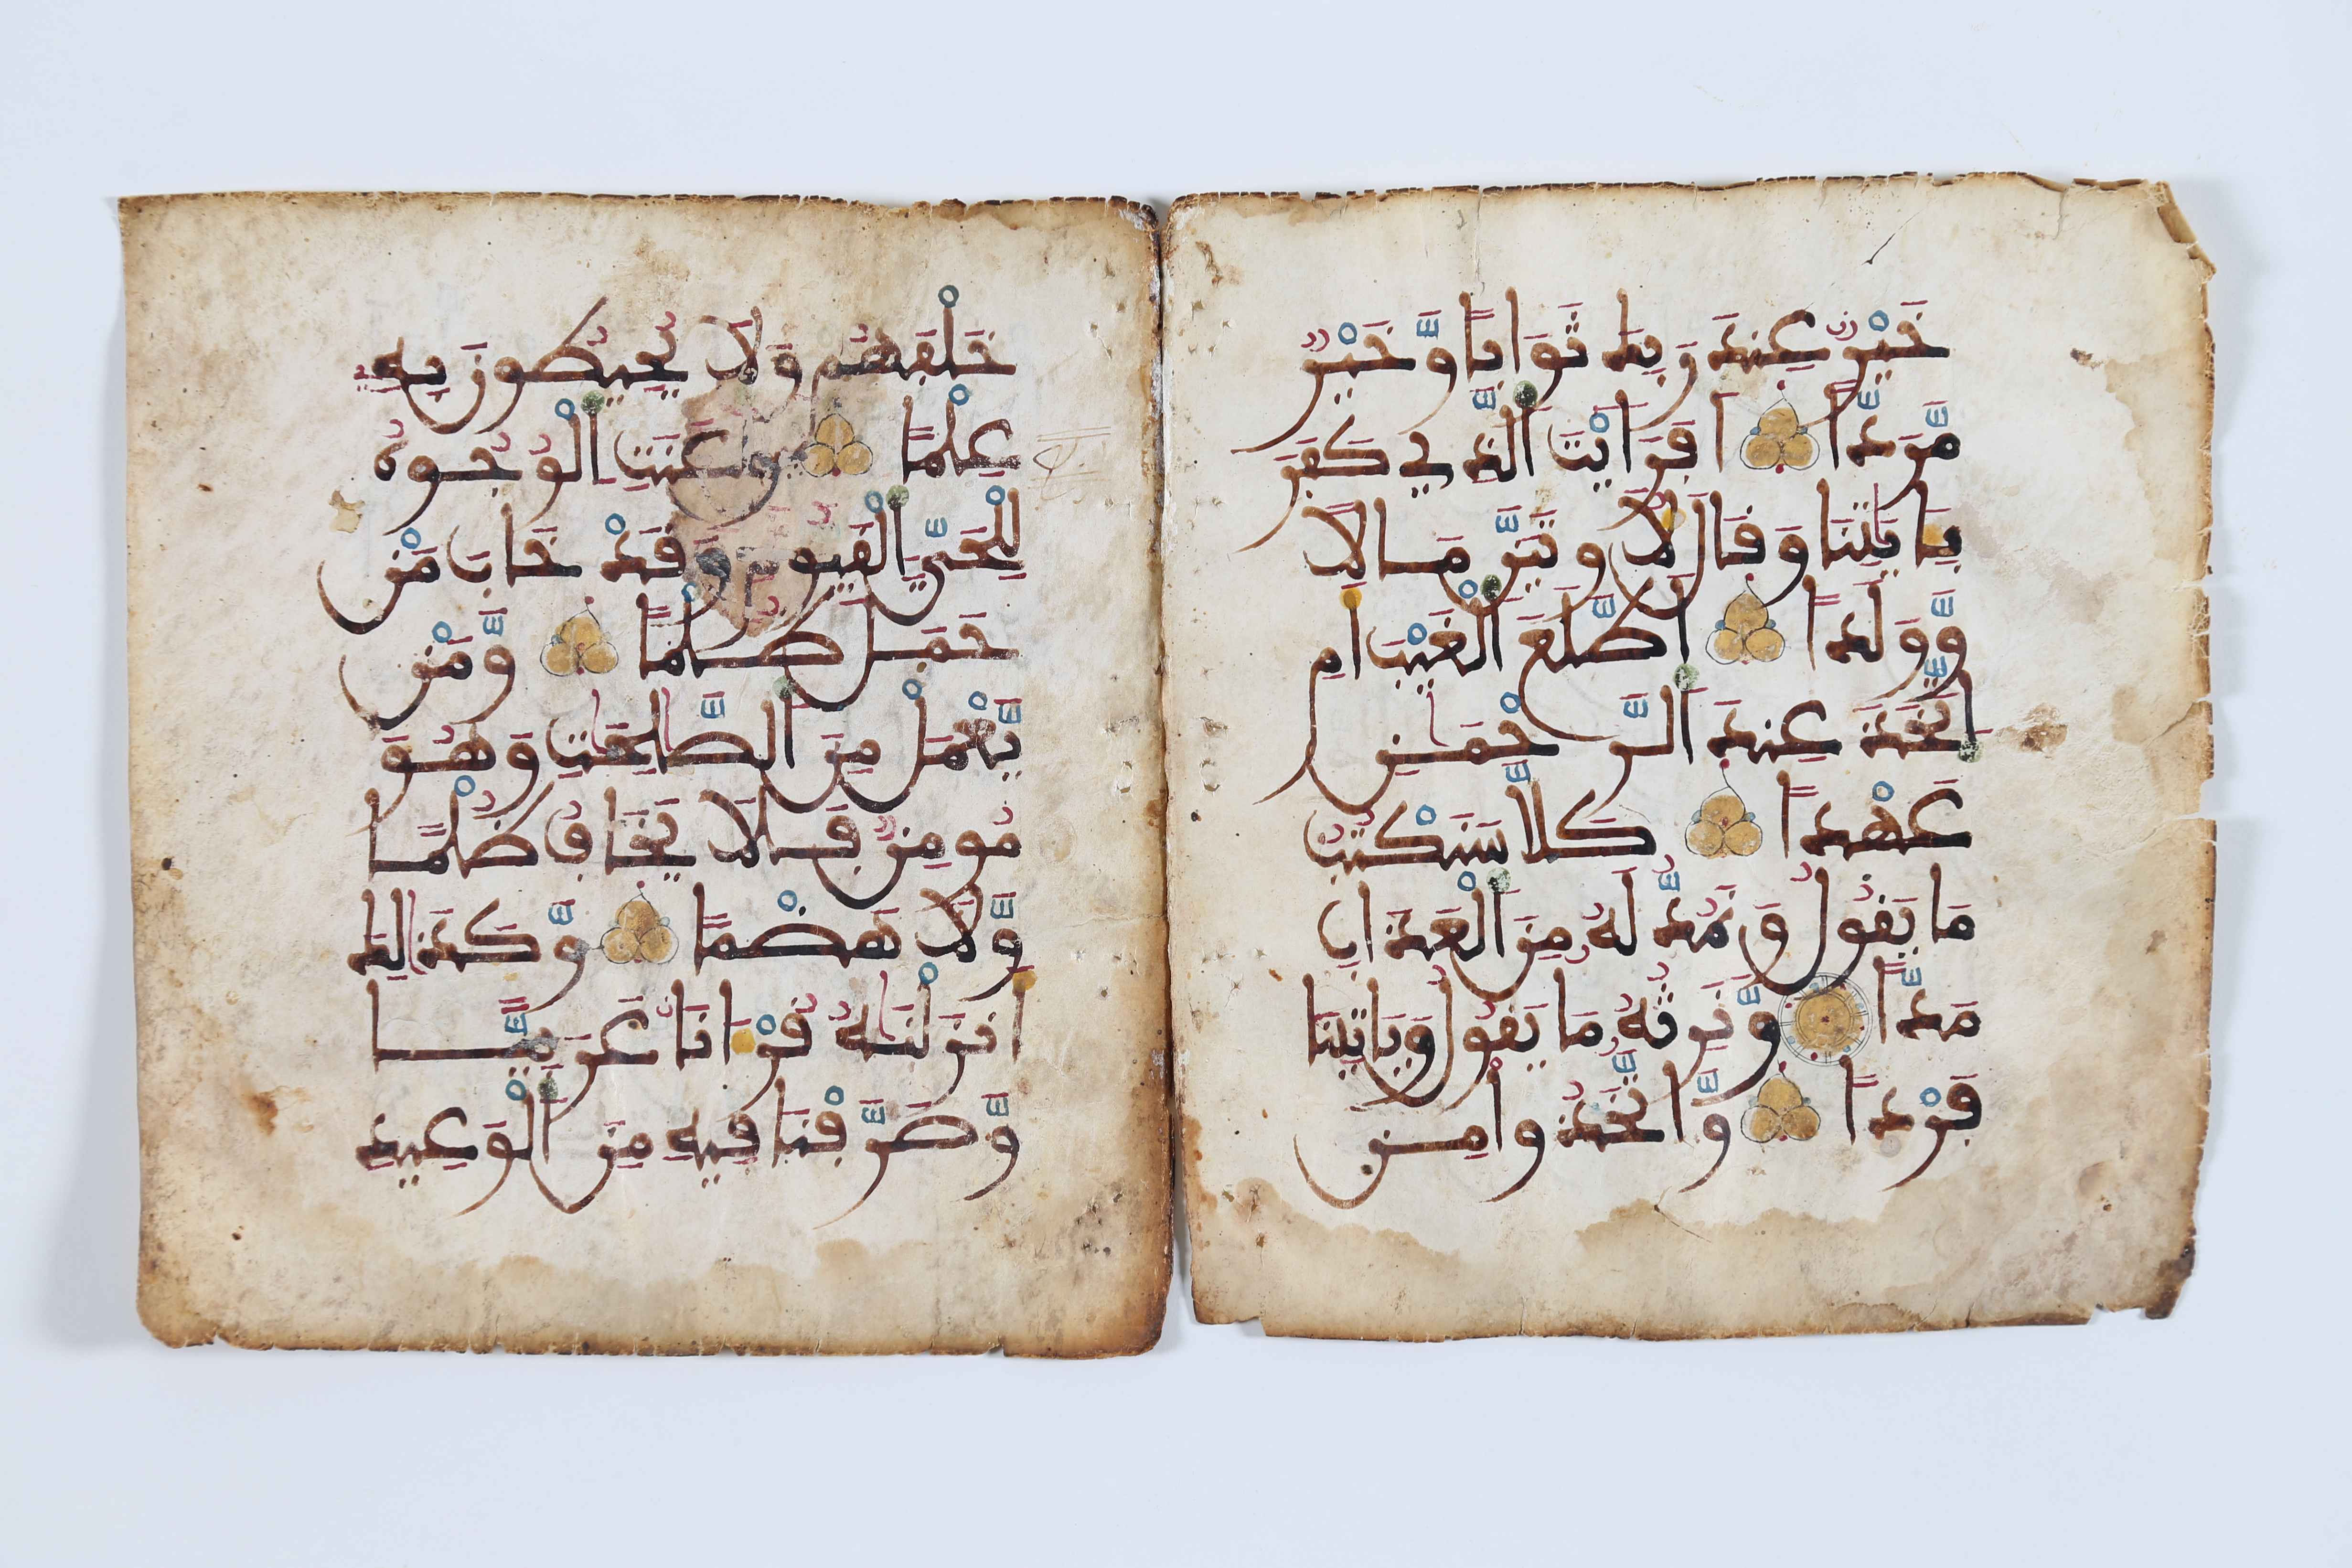 خَيْرٌ عِندَ رَبِّكَ ثَوَابًا وَّخَيْرٌ
مَّرَدًّا اَفَرَاَيْتَ اَ۬لذِے كَفَرَ
بِـَٔايَٰتِنَا وَقَالَ لَأُوتَيَنَّ مَالًا
وَّوَلَدًا اَطَّلَعَ اَ۬لْغَيْبَ أَمِ
اِ۪تَّخَذَ عِندَ اَ۬لرَّحْمَٰنِ
عَهْدًا كَلَّا سَنَكْتُبُ
مَا يَقُولُ وَنَمُدُّ لَهُۥ مِنَ اَ۬لْعَذَابِ
مَدًّا وَّنَرِثُهُۥ مَا يَقُولُ وَيَاتِينَا
فَرْدًا وَّاتَّخَذُوا مِن
خَلْفَهُمْ وَلَا يُحِيطُونَ بِهِۦ
عِلْمًا وَعَنَتِ اِ۬لْوُجُوهُ
لِلْحَيِّ اِ۬لْقَيُّومِ وَقَدْ خَابَ مَنْ
حَمَلَ ظُلْمًا وَّمَنْ
يَّعْمَلْ مِنَ اَ۬لصَّٰلِحَٰتِ وَهُوَ
مُومِنٌ فَلَا يَخَافُ ظُلْمًا
وَّلَا هَضْمًا وَّكَذَٰلِكَ
أَنزَلْنَٰهُ قُرْءَانًا عَرَبِيًّا
وَّصَرَّفْنَا فِيهِ مِنَ اَ۬لْوَعِيدِ